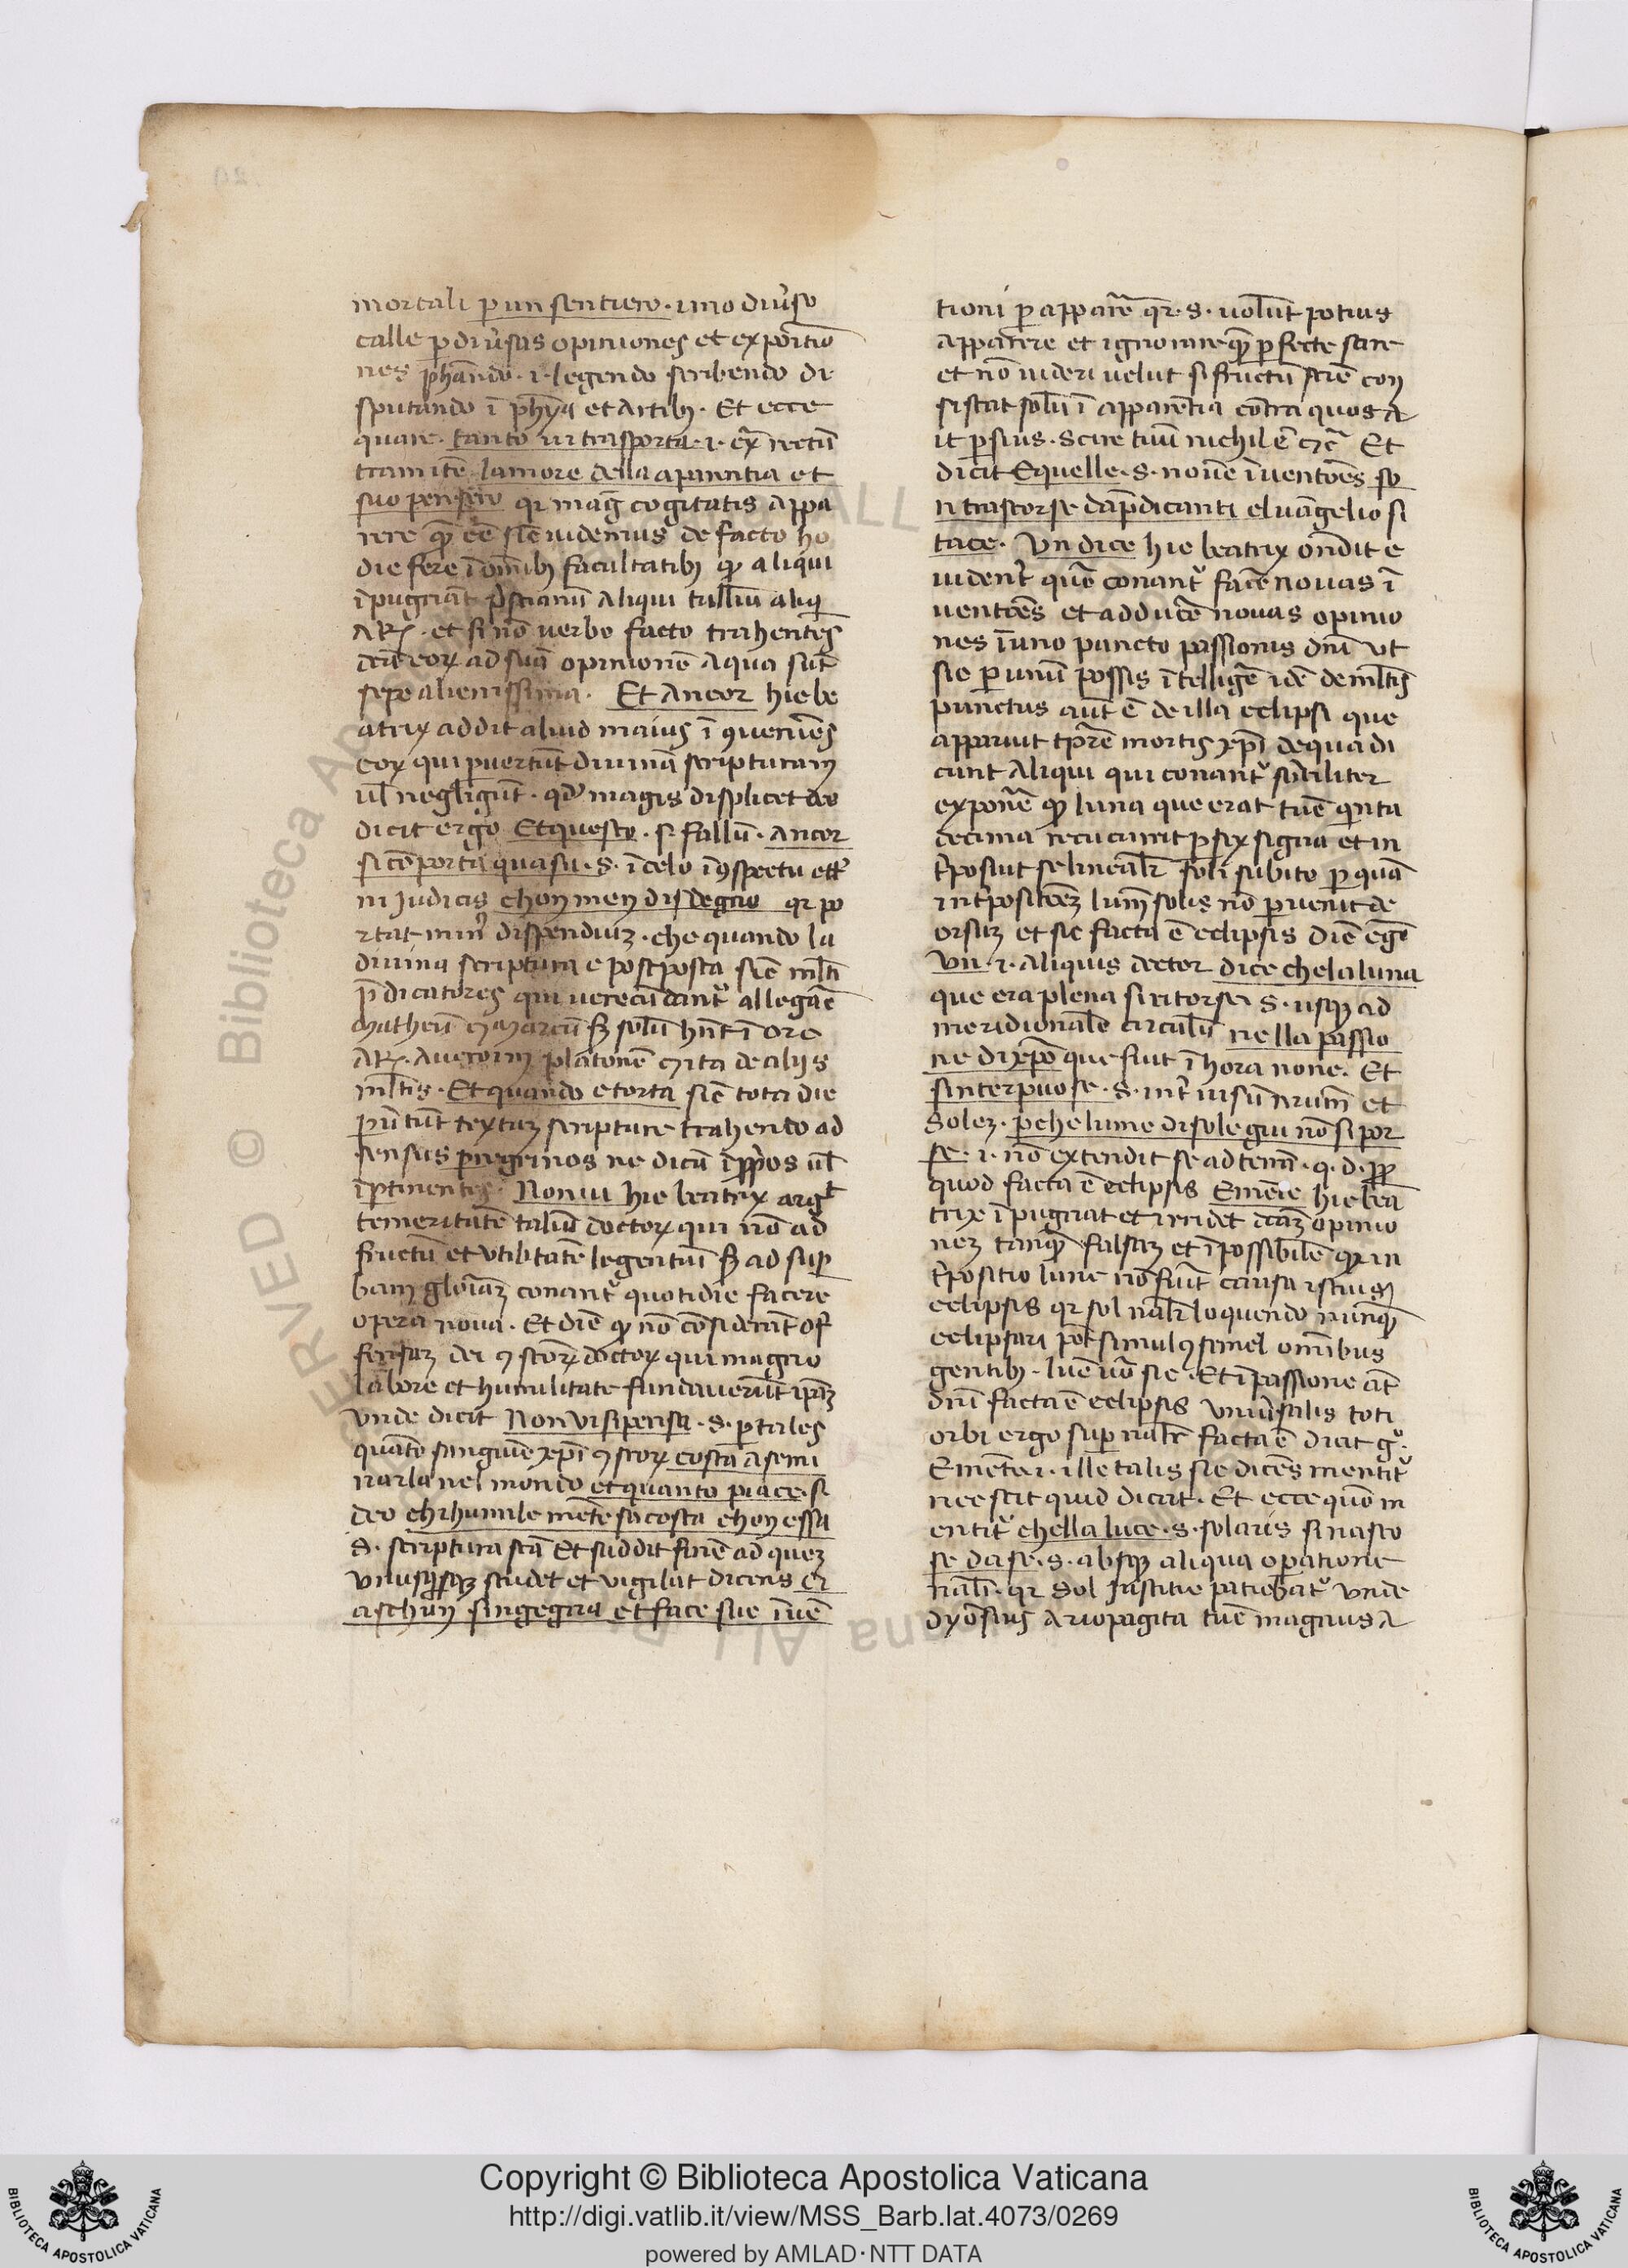 mortali p un sentiero · imo diuso
calle p diusas opiniones et expositio
nes phando · i · legendo scribendo di
sputando ī phya et artibȝ · Et ecce
quare · tanto ui trasporta · i · ex̄ rectū
tramitē lamore della aparentia et
suo pensero qr maḡ cogitatis appa
rere qȝ eē sic̄ uidemus de facto ho
die fere ī omībȝ facultatibȝ qȝ aliqui
ipugnāt pscianū aliqui tulliū aliqi
AR · et si nō uerbo facto trahentes
dcā eoꝝ ad suā opinionē a qua sūt
sepe alienissima · Et Ancor hic be
atrix addit aliud maius ī ꝯueniēs
eoꝝ qui puertūt diuinā scripturam
ul negligūt · qd magis displicet deo
dicit ergo Et questo · s · fallū · ancor
si cōporta quasu · s · ī celo ī ꝯspectu et
ni judicis chon men disdegno qr po
rtat min dispendiuȝ · che quando la
diuina scriptura e posposta sic̄ mlti
pdicatores qui uerecūdant allegare
Matheū et Marcū sȝ solū hnt ī ore
AR · Aueroim platonē et ita de alijs
mltis · Et quando e torta sic̄ tota die
textuȝ scripture trahendo ad
sensus peregrinos ne dicā īpprios ul
iptinentes · Non ui hic beatrix arg
temeritatē taliū doctoꝝ qui nō ad
fructū et utilitatē legentiū sȝ ad sup
bam gloriaȝ conant quotidie facere
opera noua · Et dic̄ qȝ nō cōsiderāt of
fensaȝ dei ꝯ scorꝝ doctoꝝ qui magno
labore et humilitate fundauerūt ipaȝ
Vnde dicit Non ui si pensa · s · p tales
quāto sanguinē xpi ꝯ scorꝝ costa a semi
narla nel mondo et quanto piace · s
deo chi humile mēte sacosta chon essa
s · scriptura sca Et suddit finē ad queȝ
Vnusqȝqȝ studet et uigilat dicens er
aschun singegna et face sue iuē
tioni p apparē qr · s · uolūt potius
apparere et ignorare qȝ pfecte scire
et nō uideri uelut si fructū sciē con
sistat solū ī apparētia cōtra quos a
it psius · Scire tuū nichil ē et Et
dicit E quelle · s · noue īuentiōes so
n trascorse da pdicanti el uangelio si
tace · Vn dice hic beatrix ondit e
uident quē conant facē nouas ī
uentōes et adducē nouas opinio
nes ī uno puncto passionis dnī ut
sic p unū possis ītelligē idē de mltis
punctus aut ē de illa eclipsi que
apparuit tpre mortis xpi de qua di
cunt aliqui qui conant subtiliter
exponē qȝ luna que erat tūc qnta
decima recucurrit p sex signa et in
tposuit se linealr soli subito p quā
intpositōeȝ lumē solis nō puenit de
orsuȝ et sic facta ē eclipsis dic̄ ergo
Vn · i · aliquis doctor dice che la luna
que era plena si ritorse s · usqȝ ad
meridionalē circulū nella passio
ne di xpo que fuit ī hora none · Et
sinterpuose · s · int uisū nrum et
Soleȝ · p che lume di sole giu nō si por
se · i · nō extendit se ad terrā · q · d · pp
quod facta ē eclipsis E mente hic bea
trix ipugnat et irridet dcaȝ opinio
neȝ tanqȝ falsaȝ et īpossibilē qȝ in
tpositio lune nō fuit causa istius
eclipsis qr sol nalr loquendo nunqȝ
eclipsari pōt simul ꝯ semel omībus
gentibȝ · luc̄ uō sic · Et ī passione āt
dnī facta ē eclipsis uniuersalis toti
orbi ergo sup nalr facta ē dicit g ·
E mente · i · ille talis sic dicēs mentit
nec scit quid dicat · Et ecce quō m
entit che lla luce · s · solaris si nasco
se da se · s · absqȝ aliqua opatione
nali · qr Sol Justitie patiebat Vnde
dyonisius ariopagita tūc magnus a
Copyright © Biblioteca Apostolica Vaticana
http://digi.vatlib.it/view/MSS_Barb.lat.4073/0269
powered by AMLAD·NTT DATA
BIBLIOTECA APOSTOLICA VATICANA
BIBLIOTECA APOSTOLICA VATICANA